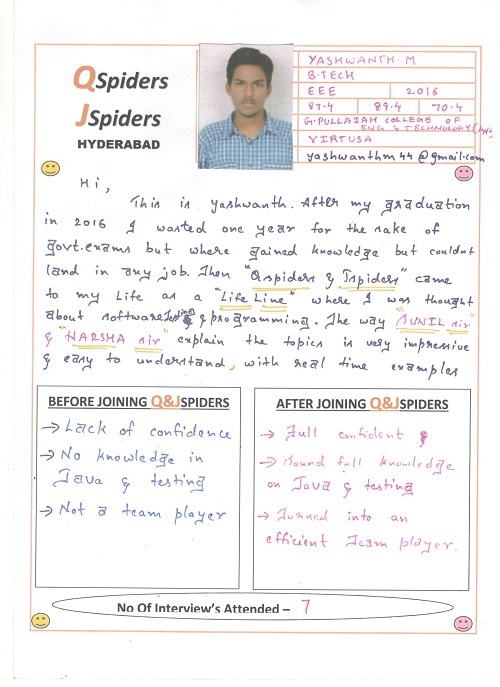 QSpiders
JSpiders
HYDERABAD
YASHWANTH.M
B.TECH
EEE 2016
87.4 89.4 70.4
G.PULLAIAH COLLEGE OF
ENG & TECHNOLOGY
VIRTUSA
yashwanthm44@gmail.com
Hi,
This is yashwanth. After my graduation
in 2016 I wasted one year for the sake of
govt.exams but where gained knowledge but couldnt
land in any job. Then "Qspiders & Jspiders" came
to my Life as a "Life Line" where I was thought
about software Testing & programming. The way "SUNIL sir"
& "HARSHA sir" explain the topics is very impressive
& easy to understand, with real time examples
BEFORE JOINING Q&JSPIDERS
→ Lack of confidence
→ No knowledge in
Java & testing
→ Not a team player
AFTER JOINING Q&JSPIDERS
→ Full confident &
→ Found full knowledge
on Java & testing
→ Turned into an
efficient Team player.
No Of Interview's Attended – 7